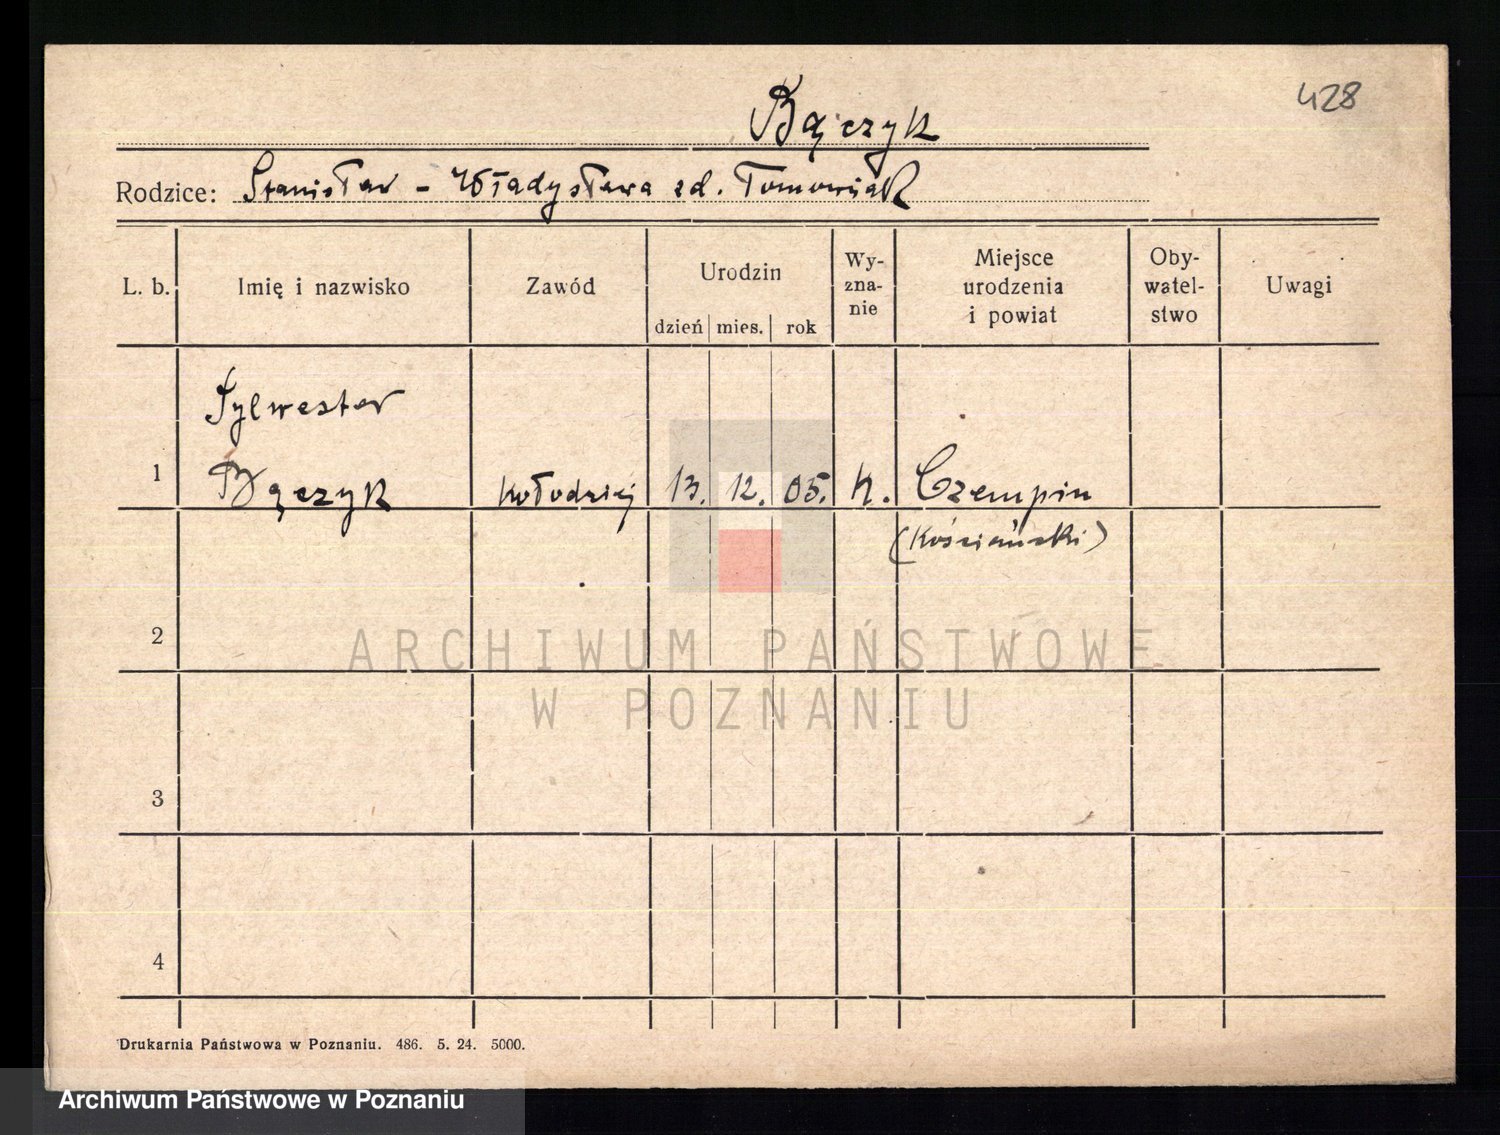 428
Bączyk
Rodzice: Stanisław - Władysława zd. Tomowiak
L. b.
Imię i nazwisko
Zawód
Urodzin
dzień mies. rok
Wy-
zna-
nie
Miejsce
urodzenia
i powiat
Oby-
watel-
stwo
Uwagi
Sylwester
1 Bączyk kołodziej 13. 12. 05. k. Czempin
(Kościański)
2
3
4
ARCHIWUM PAŃSTWOWE
W POZNANIU
Drukarnia Państwowa w Poznaniu. 486. 5. 24. 5000.
Archiwum Państwowe w Poznaniu